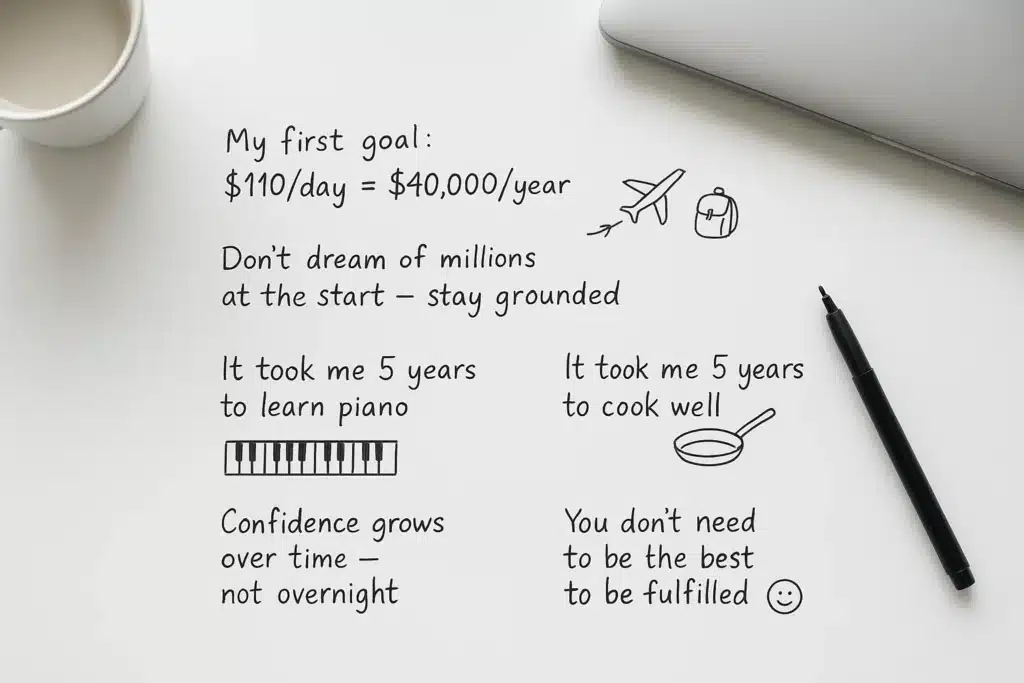 My first goal:
$110/day = $40,000/year
Don't dream of millions
at the start – stay grounded
It took me 5 years
to learn piano
It took me 5 years
to cook well
Confidence grows
over time –
not overnight
You don't need
to be the best
to be fulfilled